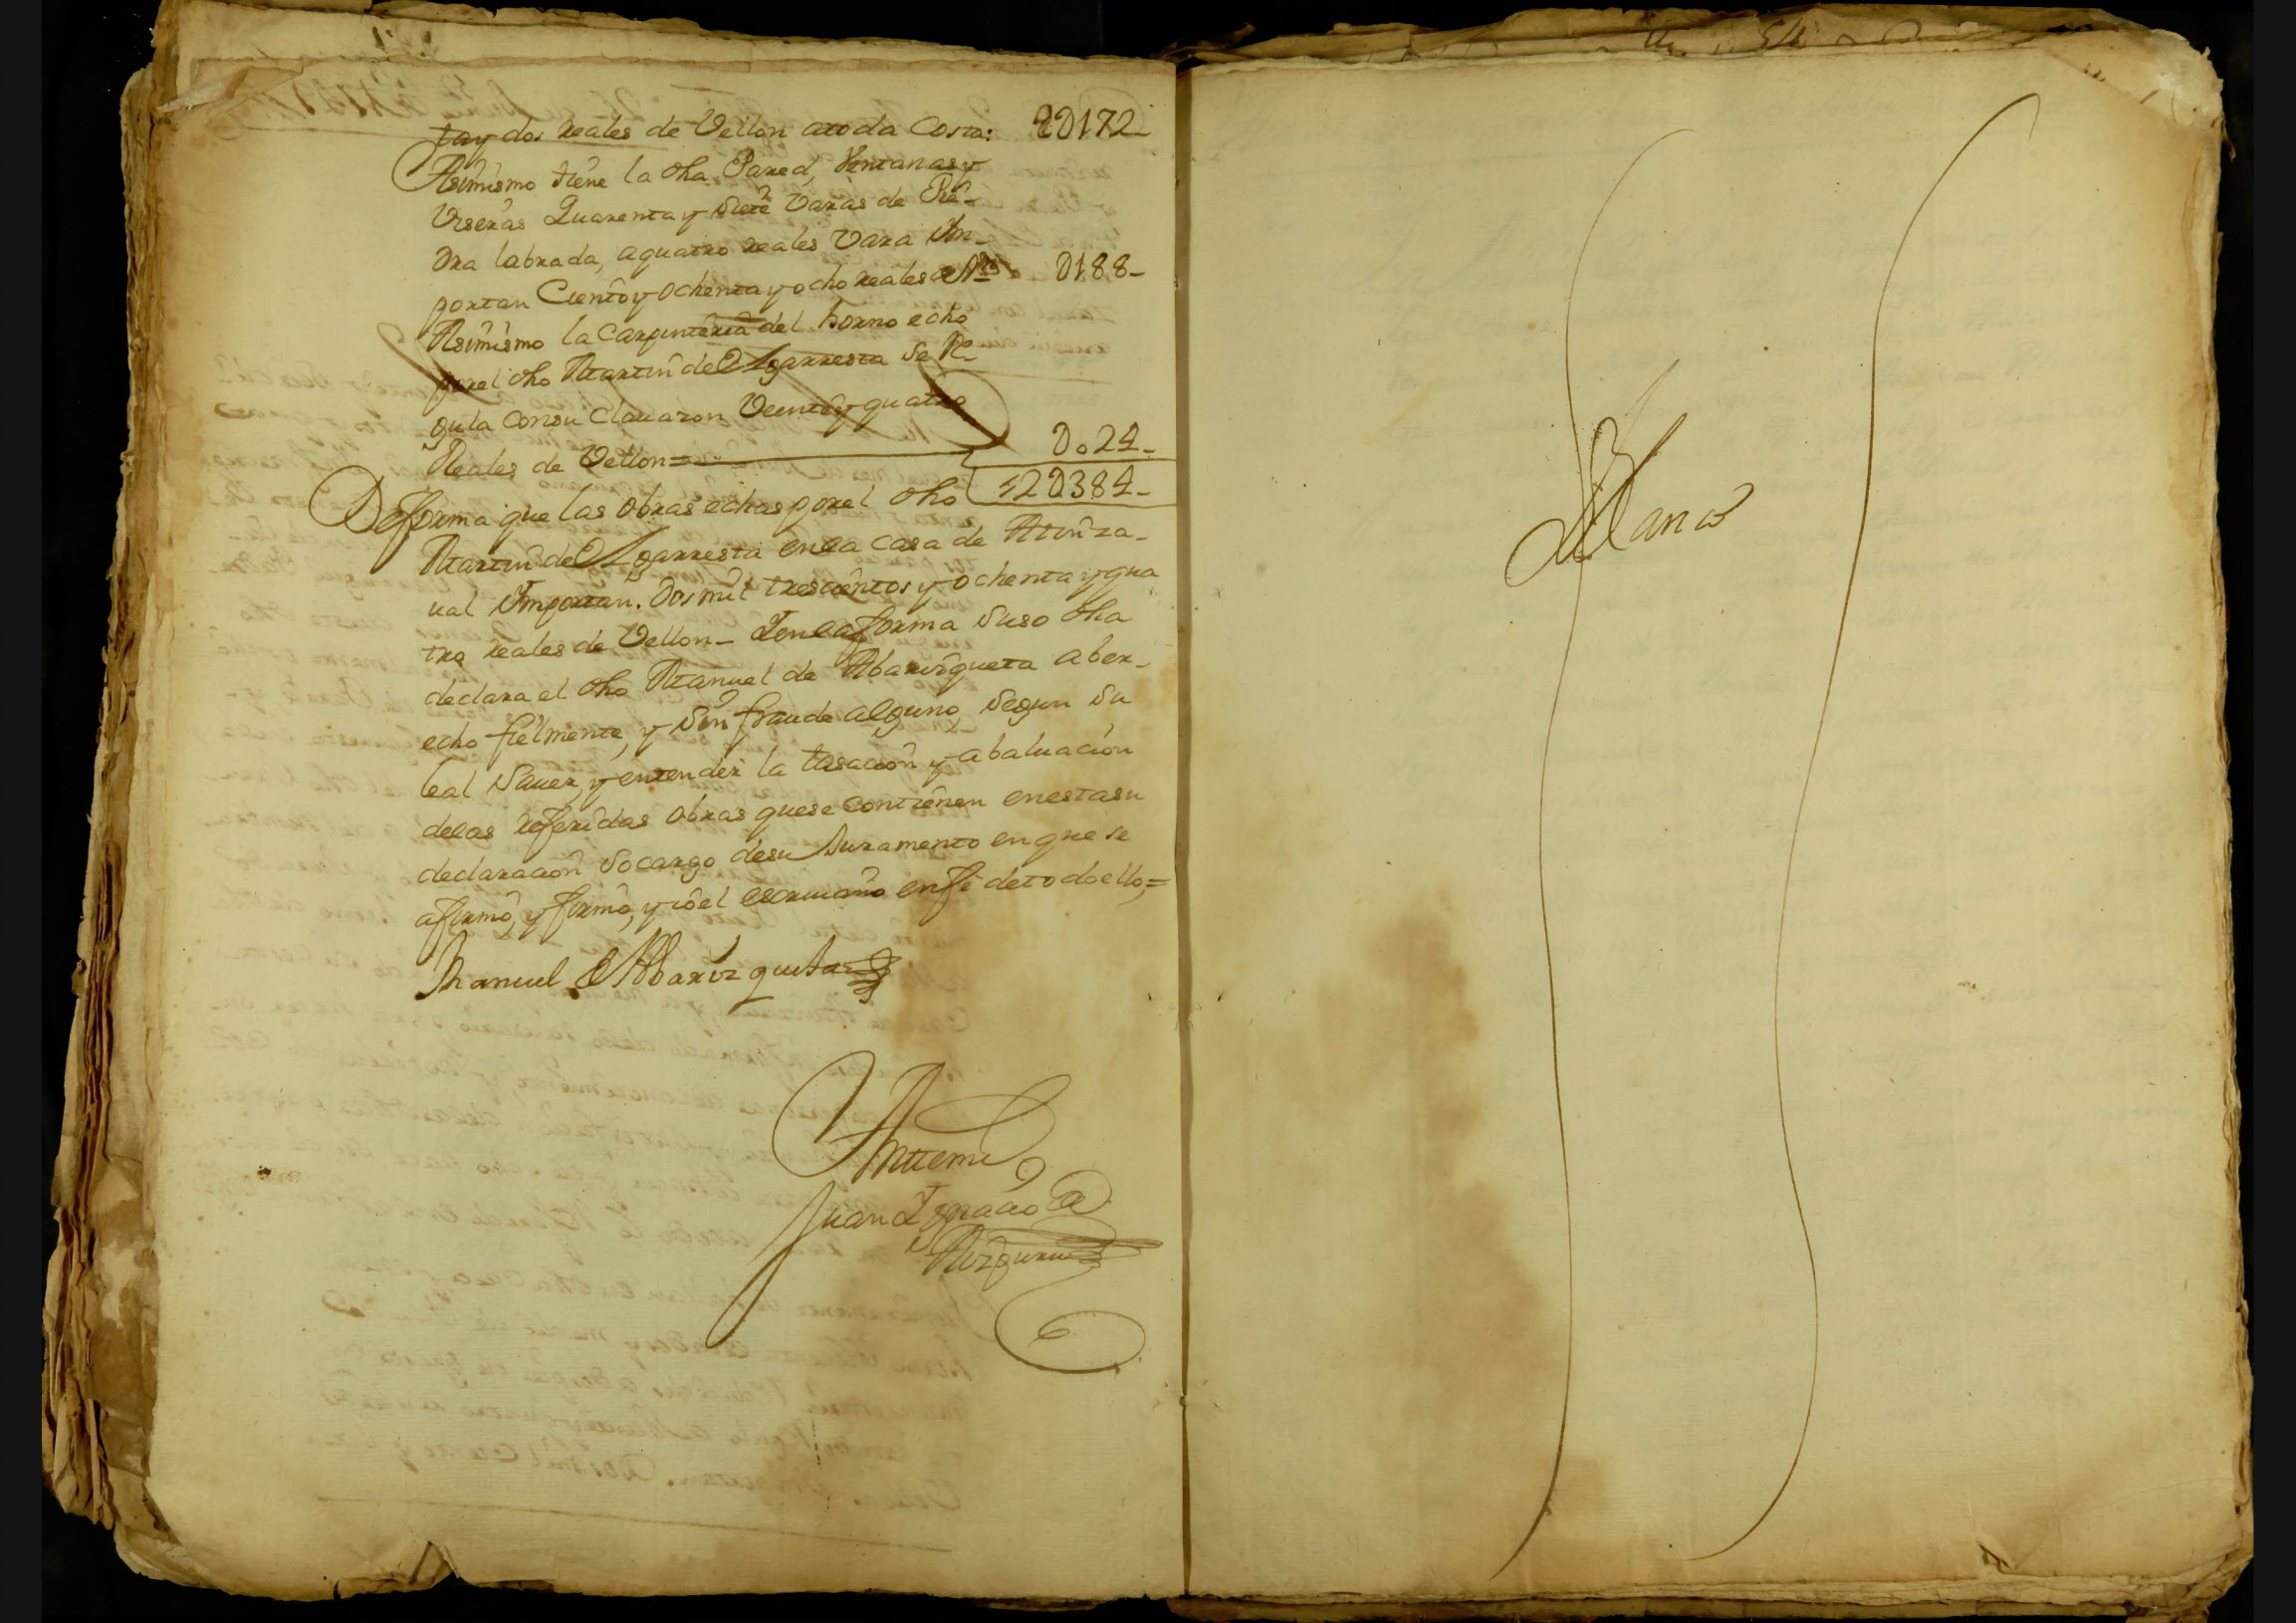 tay dos reales de Vellon atoda Costa: 2D172-
Asimismo tiene la dha Pared, Ventanas y
Viseras Quarenta y siete Varas de Pie-
dra labrada, aquatro reales Vara Ym-
portan Ciento y ochenta y ocho reales de 0188-
Asimismo la Carpinteria del horno echo
porel dho Martin de Elgarresta se Re-
gula Consu Clauazon Veinte y quatro
Reales de Vellon= D.24-
De forma que las obras echas porel dho 2D384-
Martin de Elgarresta enla casa de Minza-
ual Ymportan. Dos mil trescientos y ochenta y qua
tro reales de Vellon- Yenla forma suso dha
declara el dho Manuel de Abarizqueta aber-
echo fielmente, y sin fraude alguno, segun su
leal sauer, y entender la tasacion y abaluacion
delas referidas obras quese contienen enestasu
declaracion socargo desu Juramento en que se
afirmó, y firmó, y ió el escriuano enfé detodoello,=
Manuel de Abarizqueta
Antemi
Juan Ygnacio de
Blanco